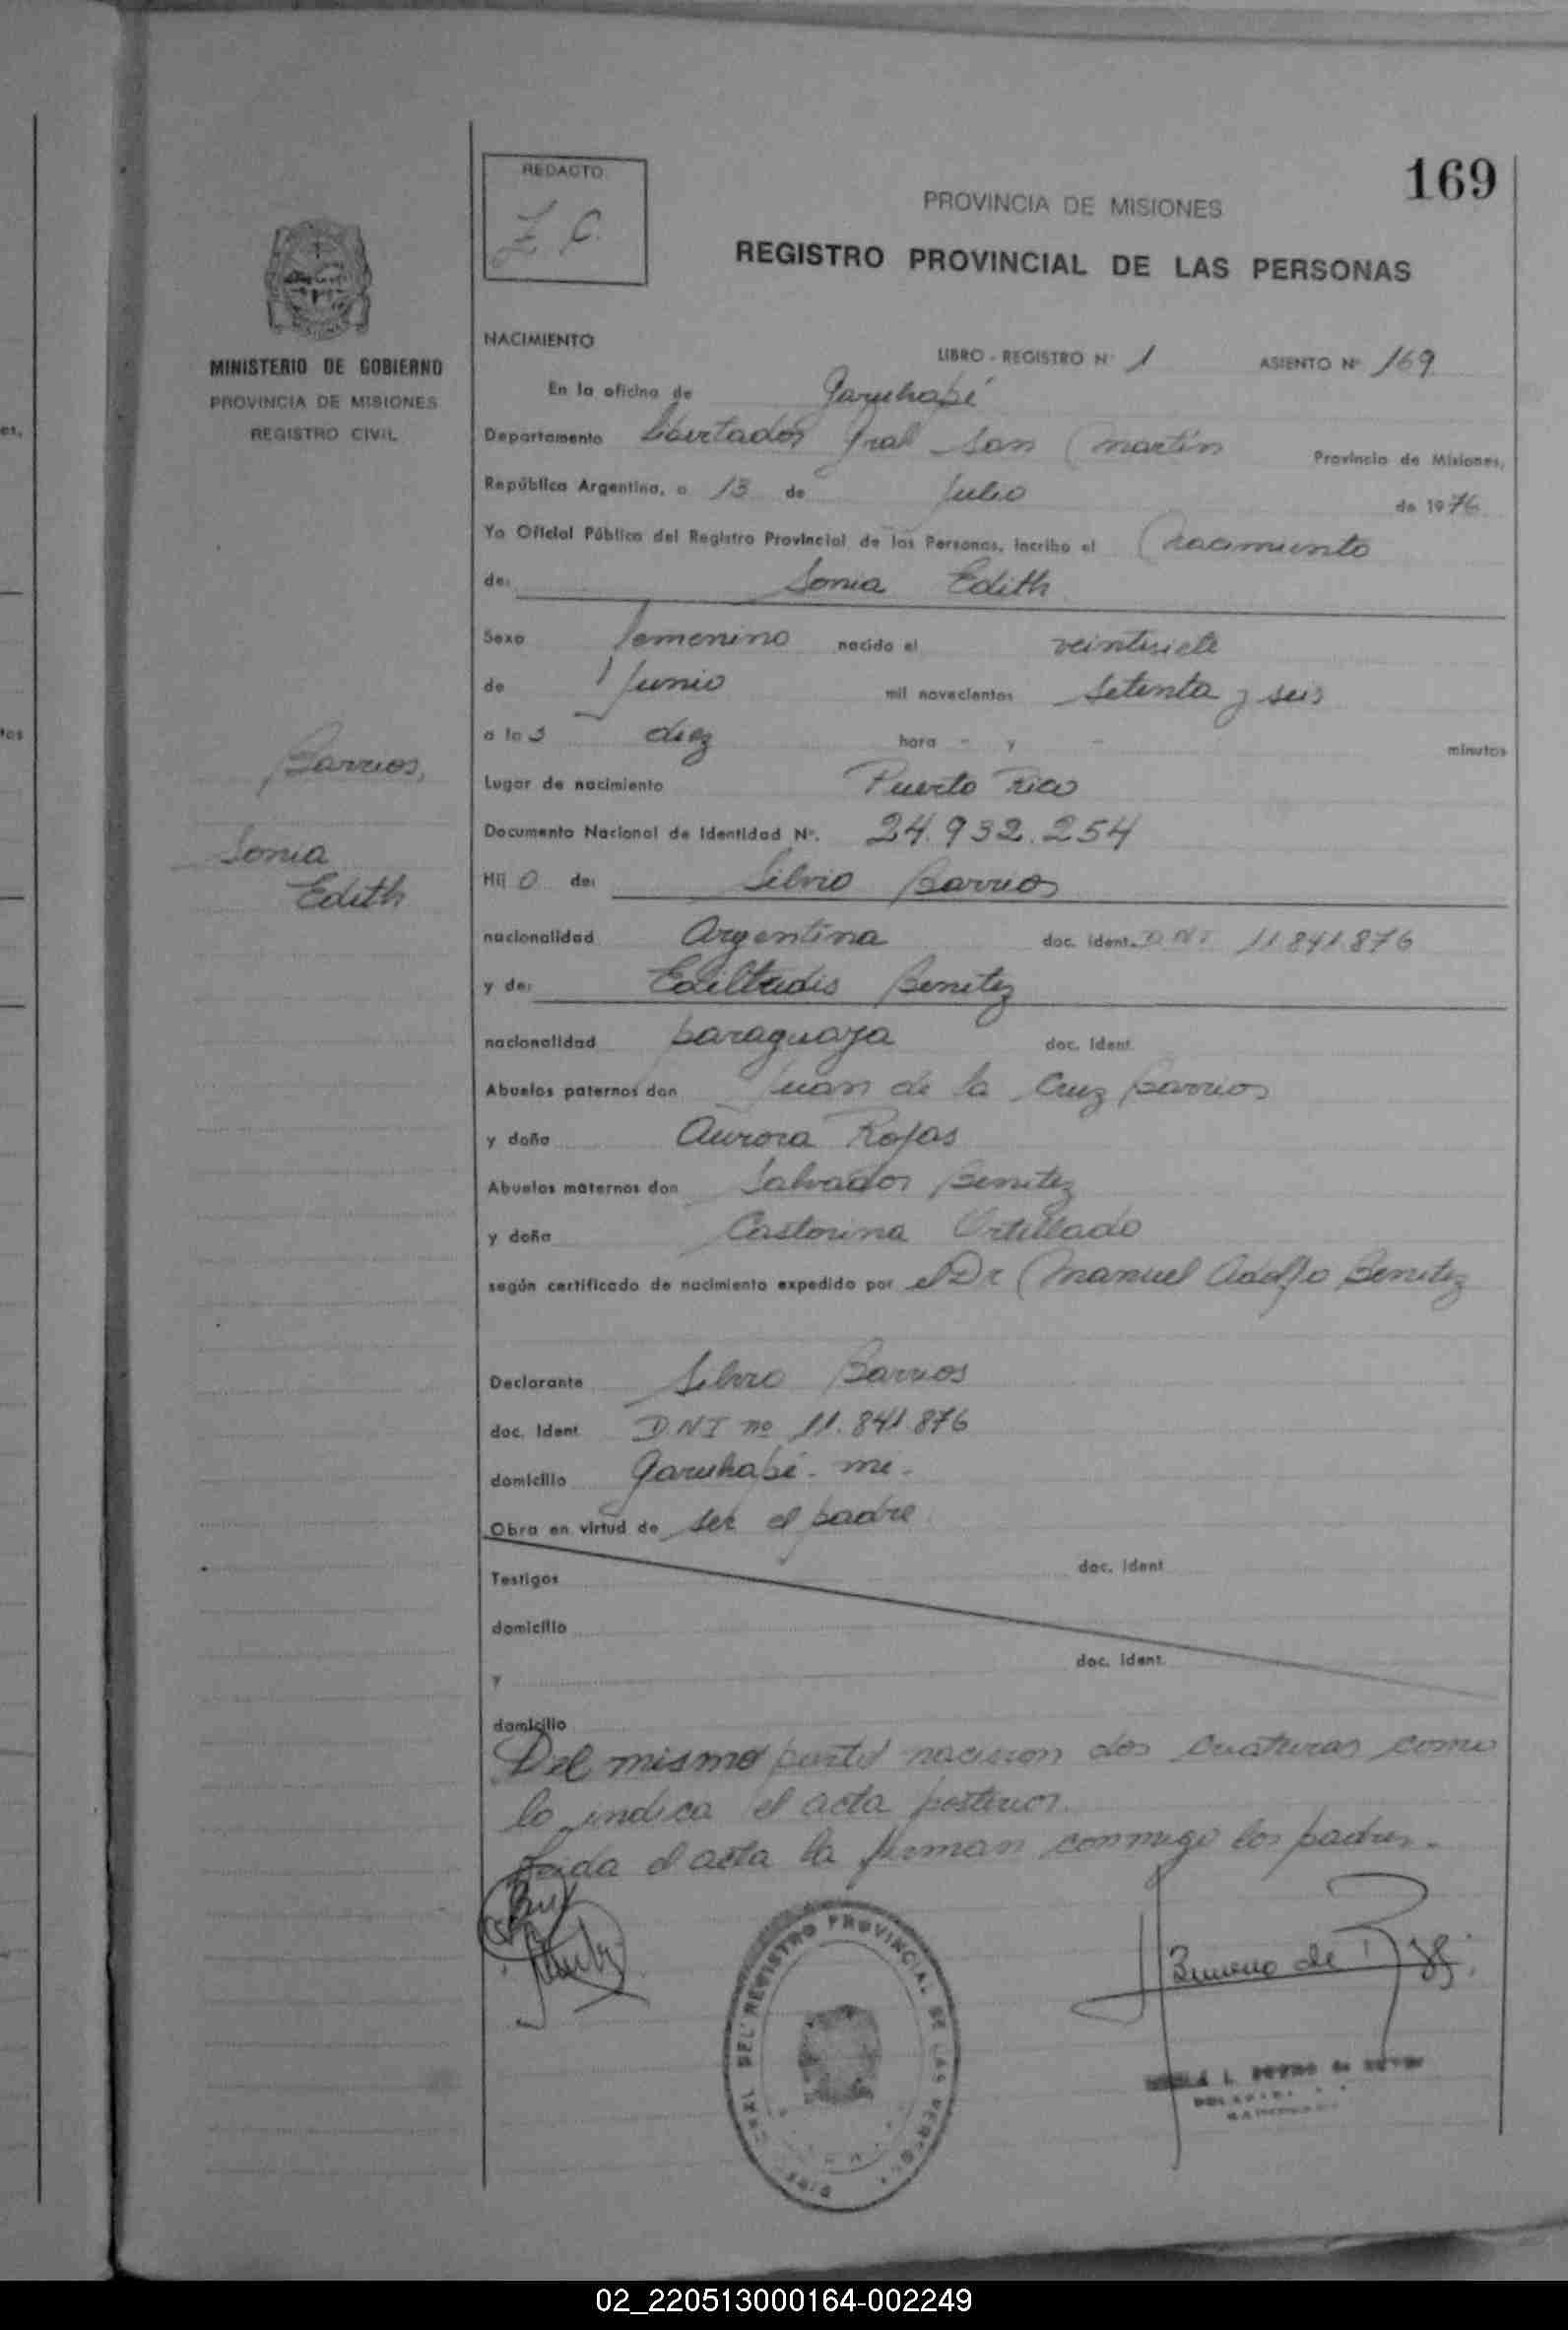 169
REDACTO
Z C.
PROVINCIA DE MISIONES
REGISTRO PROVINCIAL DE LAS PERSONAS
MINISTERIO DE GOBIERNO
PROVINCIA DE MISIONES
REGISTRO CIVIL
NACIMIENTO
LIBRO - REGISTRO Nº 1 ASIENTO Nº 169
En la oficina de Garuhapé
Departamento Libertador Gral San Martín Provincia de Misiones,
República Argentina, a 13 de Julio de 1976
Yo Oficial Público del Registro Provincial de las Personas, incribo el Nacimiento
de: Sonia Edith
Sexo femenino nacido el veintisiete
de Junio mil novecientos setenta y seis
a las diez hora - y - minutos
Barrios,
Sonia
Edith
Lugar de nacimiento Puerto Rico
Documento Nacional de Identidad Nº. 24.932.254
Hij o de: Silvio Barrios
nacionalidad Argentina doc. ident. DNI 11.841.876
y de: Ediltrudis Benitez
nacionalidad paraguaya doc. ident.
Abuelos paternos don Juan de la Cruz Barrios
y doña Aurora Rojas
Abuelos maternos don Salvador Benitez
y doña Castorina Ortellado
según certificado de nacimiento expedido por el Dr Manuel Adolfo Benitez
Declarante Silvio Barrios
doc. Ident. DNI nº 11.841.876
domicilio Garuhapé - mi -
Obra en virtud de ser el padre
Testigos doc. ident.
domicilio
y doc. ident.
domicilio
Del mismo parto nacieron dos criaturas como
lo indica el acta posterior.
Leida el acta la firman conmigo los padres.
REGISTRO PROVINCIAL DE LAS
02_220513000164-002249